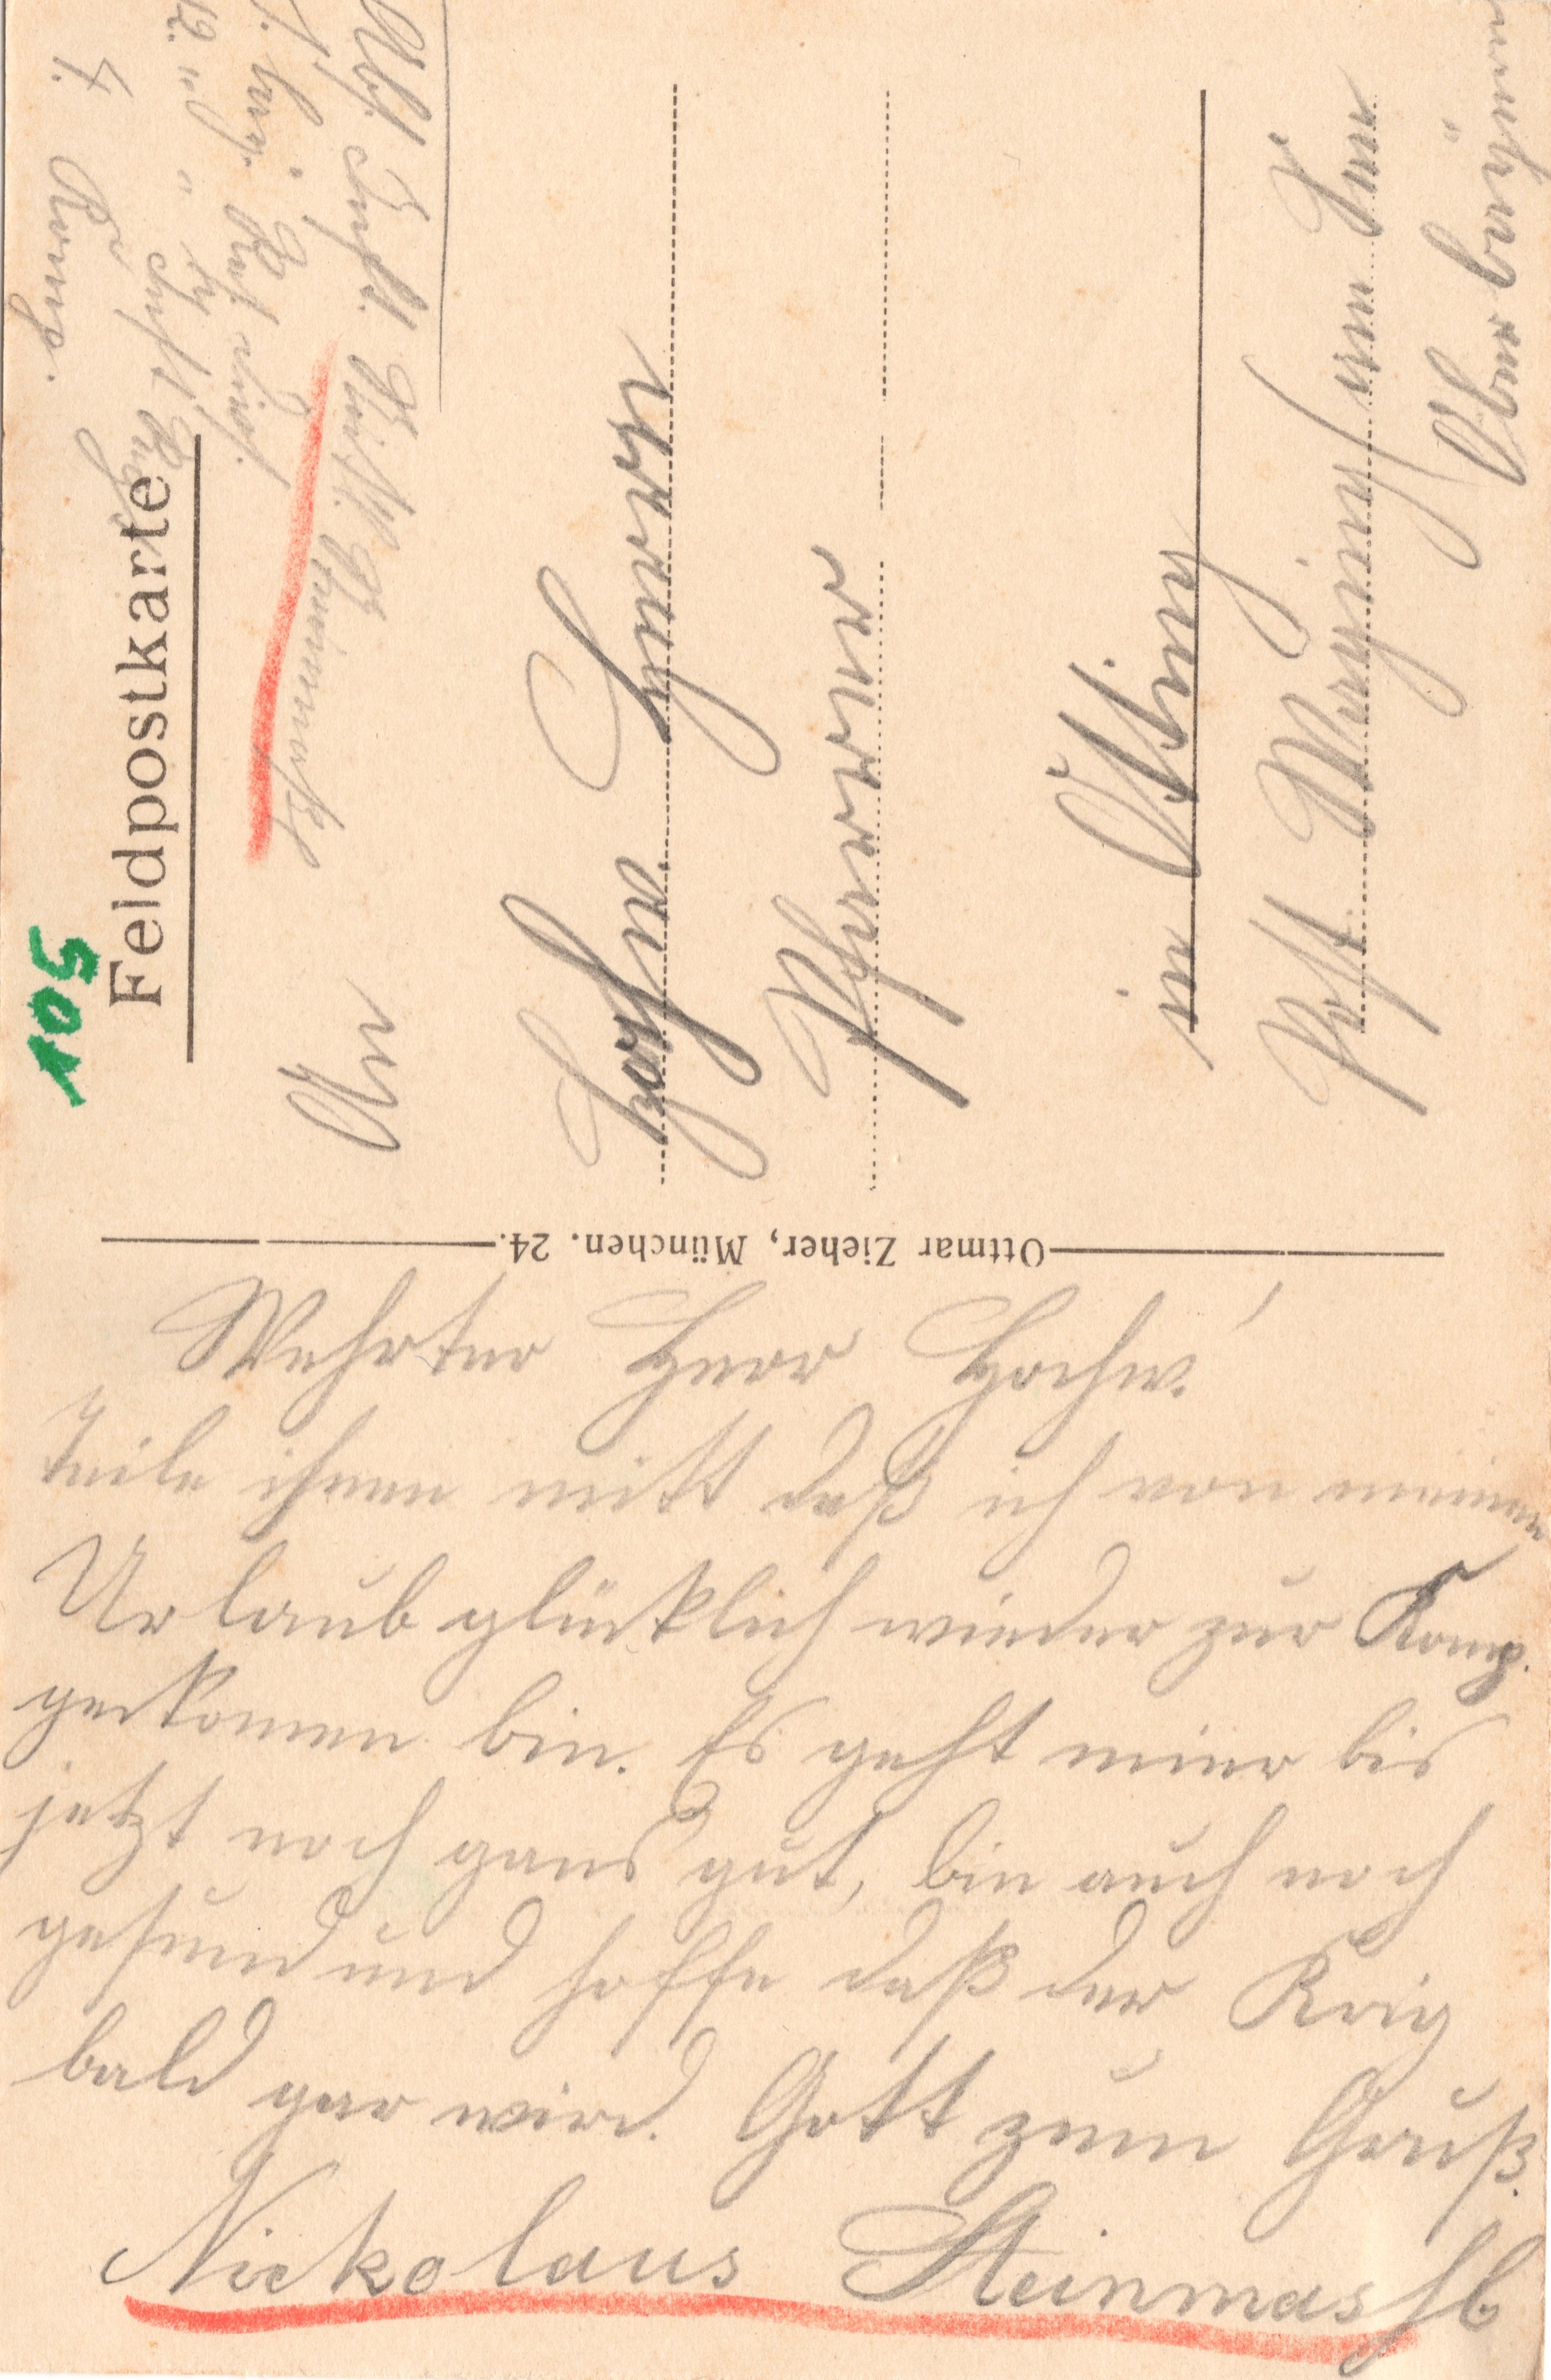 105
Feldpostkarte
Abs. Inftl.
1. bay.
12. " "
Inft.
7. Komp.
An
Hochw. Herrn
Pfarrer
in Otting
Post Waging am See
Oberbayern
Ottmar Zieher, München. 24.
Wehrter Herr Hochw.!
Teile ihnen mitt daß ich von meinen
Urlaub glücklich wieder zur Komp.
gekomen bin. Es geht mier bis
jetzt noch gans gut, bin auch noch
gesund und hoffe daß der Krig
bald gar wird. Gott zum Gruß.
Nickolaus Steinmassl